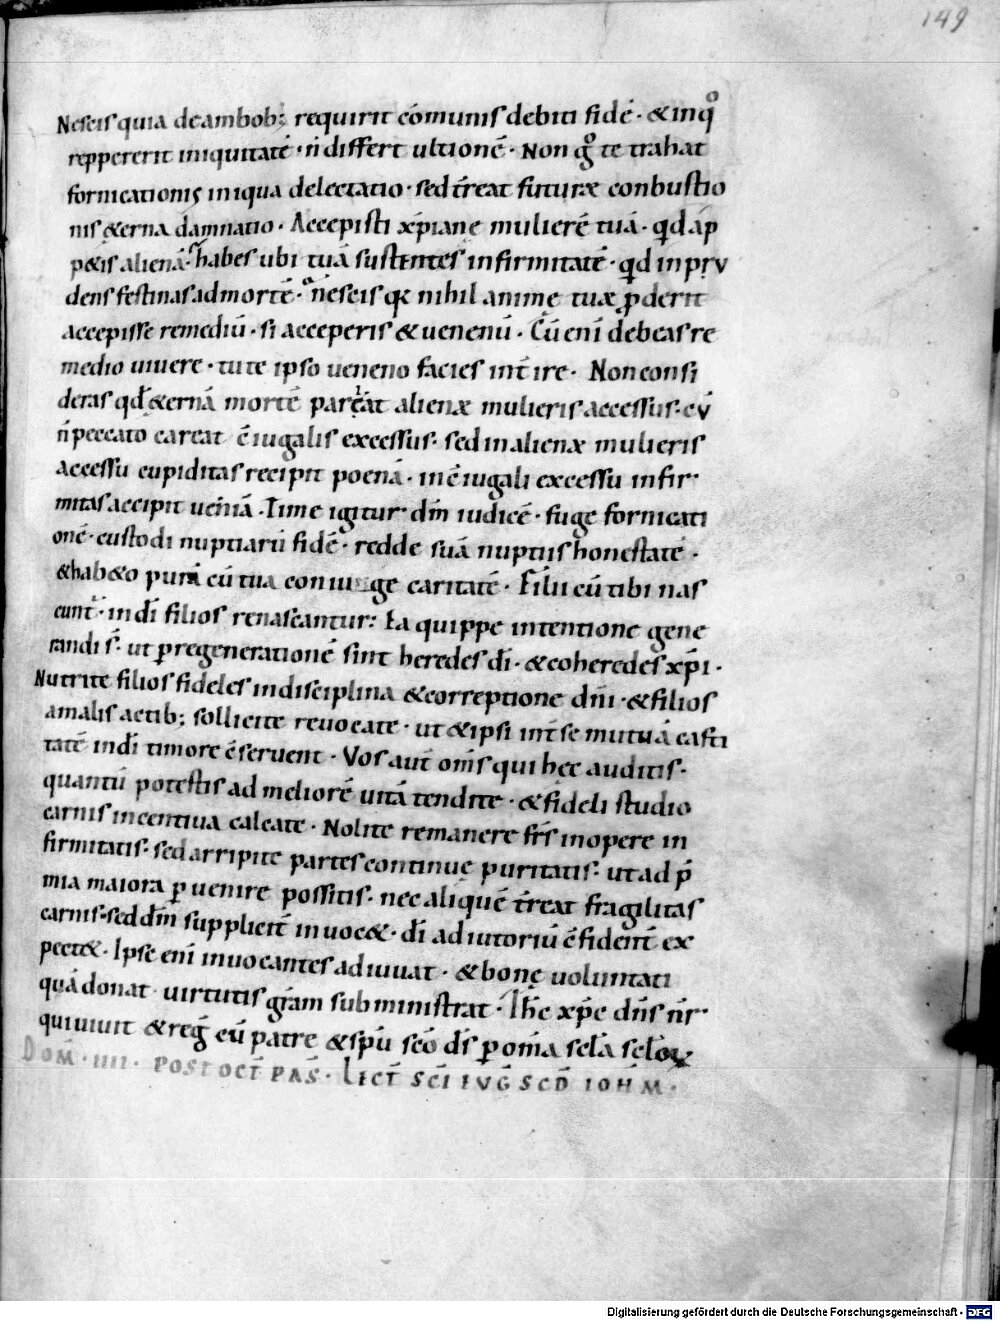 149
Nescis quia de ambob; requirit cōmunis debiti fidē · & in qͦ
reppererit iniquitatē · n̄ differt ultionē · Non gͦ te trahat
fornicationis iniqua delectatio · sed t̄reat futuræ conbustio
nis & ęterna dāmnatio · Accepisti xp̄iane mulierē tuā · qd ap
p&is alienā · habes ubi tuā sustentes infirmitatē · qd inpru
dens festinas ad mortē · nescis qꝛ nihil animę tuæ ꝓderit
accepisse remediū · si acceperis & uenenū · Cū eni debeas re
medio uiuere · tu te ipso ueneno facies int̄ire · Non consi
deras qđ &ernā mortē pareat alienæ mulieris accessus · cū
n̄ peccato careat c̄iugalis excessus · sed in alienæ mulieris
accessu cupiditas recipit poenā · in c̄iugali excessu infir
mitas accipit ueniā · Time igitur dm̄ iudicē · fuge fornicati
onē · custodi nuptiarū fidē · redde suā nuptiis honestatē ·
& hab&o purā cū tua coniuge caritatē · Filii cū tibi nas
cunt̄ · in dī filios renascantur: Ea quippe intentione gene
randi s̄ · ut ꝑ regenerationē sint heredes dī · & coheredes xp̄i ·
Nutrite filios fideles in disciplina & correptione dn̄i · & filios
a malis actib; sollicite reuocate · ut & ipsi int̄ se mutuā casti
tatē in dī timore c̄seruent · Vos aut̄ om̄s qui hęc auditis ·
quantū potestis ad meliorē uitā tendite · & fideli studio
carnis incentiua calcate · Nolite remanere fr̄s in opere in
firmitatis · sed arripite partes continuę puritatis · ut ad p̄
mia maiora ꝑuenire possitis · nec aliquē t̄reat fragilitas
carnis · sed dm̄ supplicit̄ inuoc& · dī adiutoriū c̄fident̄ ex
pect& · Ipse eni inuocantes adiuuat · & bonę uoluntati
quā donat uirtutis gr̄am subministrat · Ih̄c xp̄c dn̄s nr̄
qui uiuit & reg̃ cū patre & sp̄u sc̄o d̄s ꝑ om̄a sc̄la sc̄loꝝ
Dom̄ · IIII · post oct̄ pas̄ · Lect̄ sc̄i eug̃ scd̄ ioh̄m ·
Digitalisierung gefördert durch die Deutsche Forschungsgemeinschaft - DFG